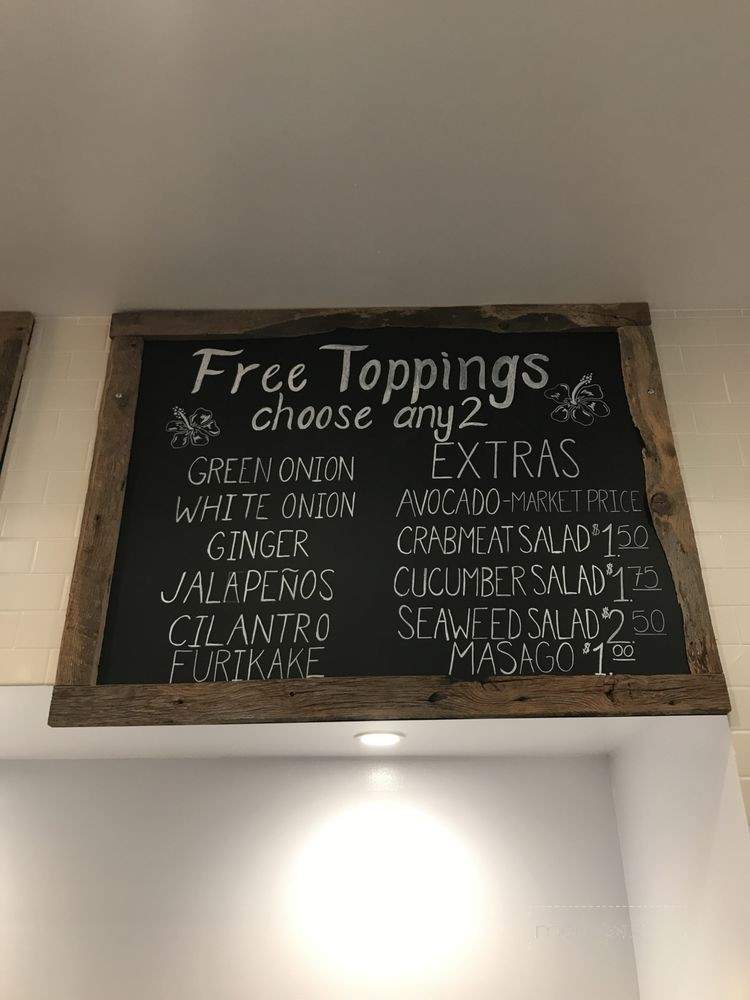 Free Toppings
choose any 2
GREEN ONION
WHITE ONION
GINGER
JALAPEÑOS
CILANTRO
FURIKAKE
EXTRAS
AVOCADO-MARKET PRICE
CRABMEAT SALAD $1.50
CUCUMBER SALAD $1.75
SEAWEED SALAD $2.50
MASAGO $1.00